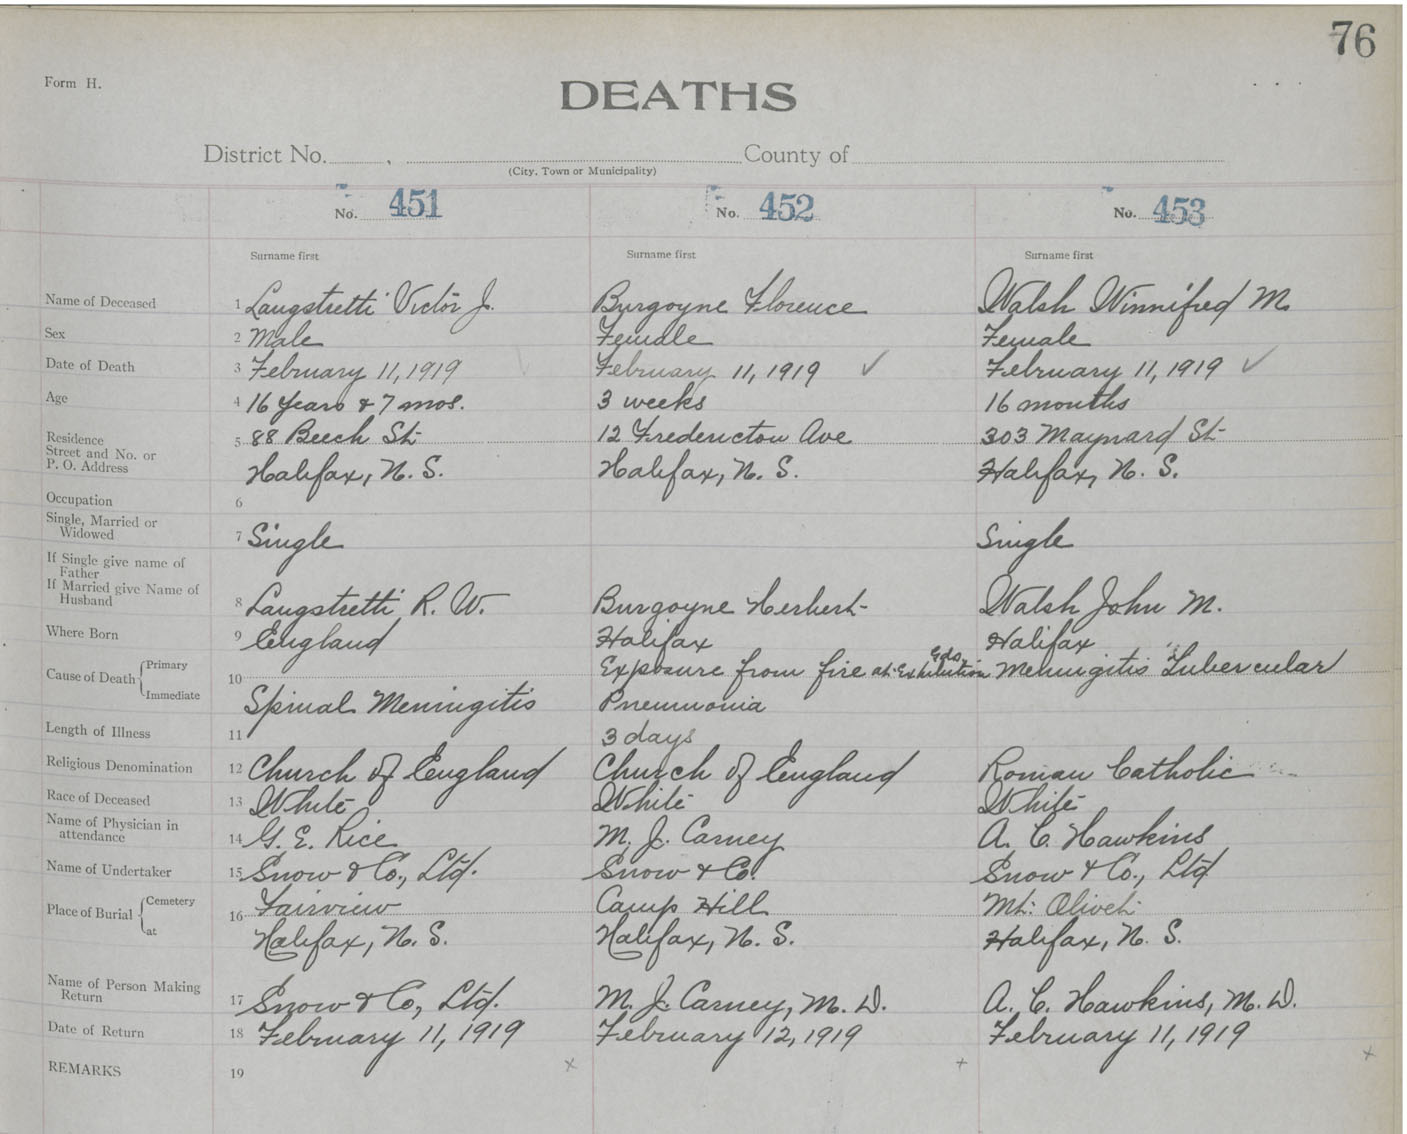 76
Form H.
DEATHS
District No. , County of
(City, Town or Municipality)
No. 451 No. 452 No. 453
Surname first Surname first Surname first
Name of Deceased 1 Langstretti Victor J. Burgoyne Florence Walsh Winnifred M.
Sex 2 Male Female Female
Date of Death 3 February 11, 1919 February 11, 1919 ✓ February 11, 1919 ✓
Age 4 16 Years & 7 mos. 3 weeks 16 months
Residence
Street and No. or 5 88 Beech St 12 Fredericton Ave 303 Maynard St
P. O. Address Halifax, N. S. Halifax, N. S. Halifax, N. S.
Occupation 6
Single, Married or
Widowed 7 Single Single
If Single give name of
Father
If Married give Name of
Husband 8 Langstretti R. W. Burgoyne Herbert Walsh John M.
Where Born 9 England Halifax Halifax
Cause of Death Primary 10 Exposure from fire at Exhibition Gds. Meningitis Tubercular
Immediate Spinal Meningitis Pneumonia
Length of Illness 11 3 days
Religious Denomination 12 Church of England Church of England Roman Catholic
Race of Deceased 13 White White White
Name of Physician in
attendance 14 G. E. Rice M. J. Carney A. C. Hawkins
Name of Undertaker 15 Snow & Co., Ltd. Snow & Co. Snow & Co., Ltd
Place of Burial Cemetery 16 Fairview Camp Hill Mt. Olivet
at Halifax, N. S. Halifax, N. S. Halifax, N. S.
Name of Person Making
Return 17 Snow & Co, Ltd. M. J. Carney, M. D. A. C. Hawkins, M. D.
Date of Return 18 February 11, 1919 February 12, 1919 February 11, 1919
REMARKS 19 x + x